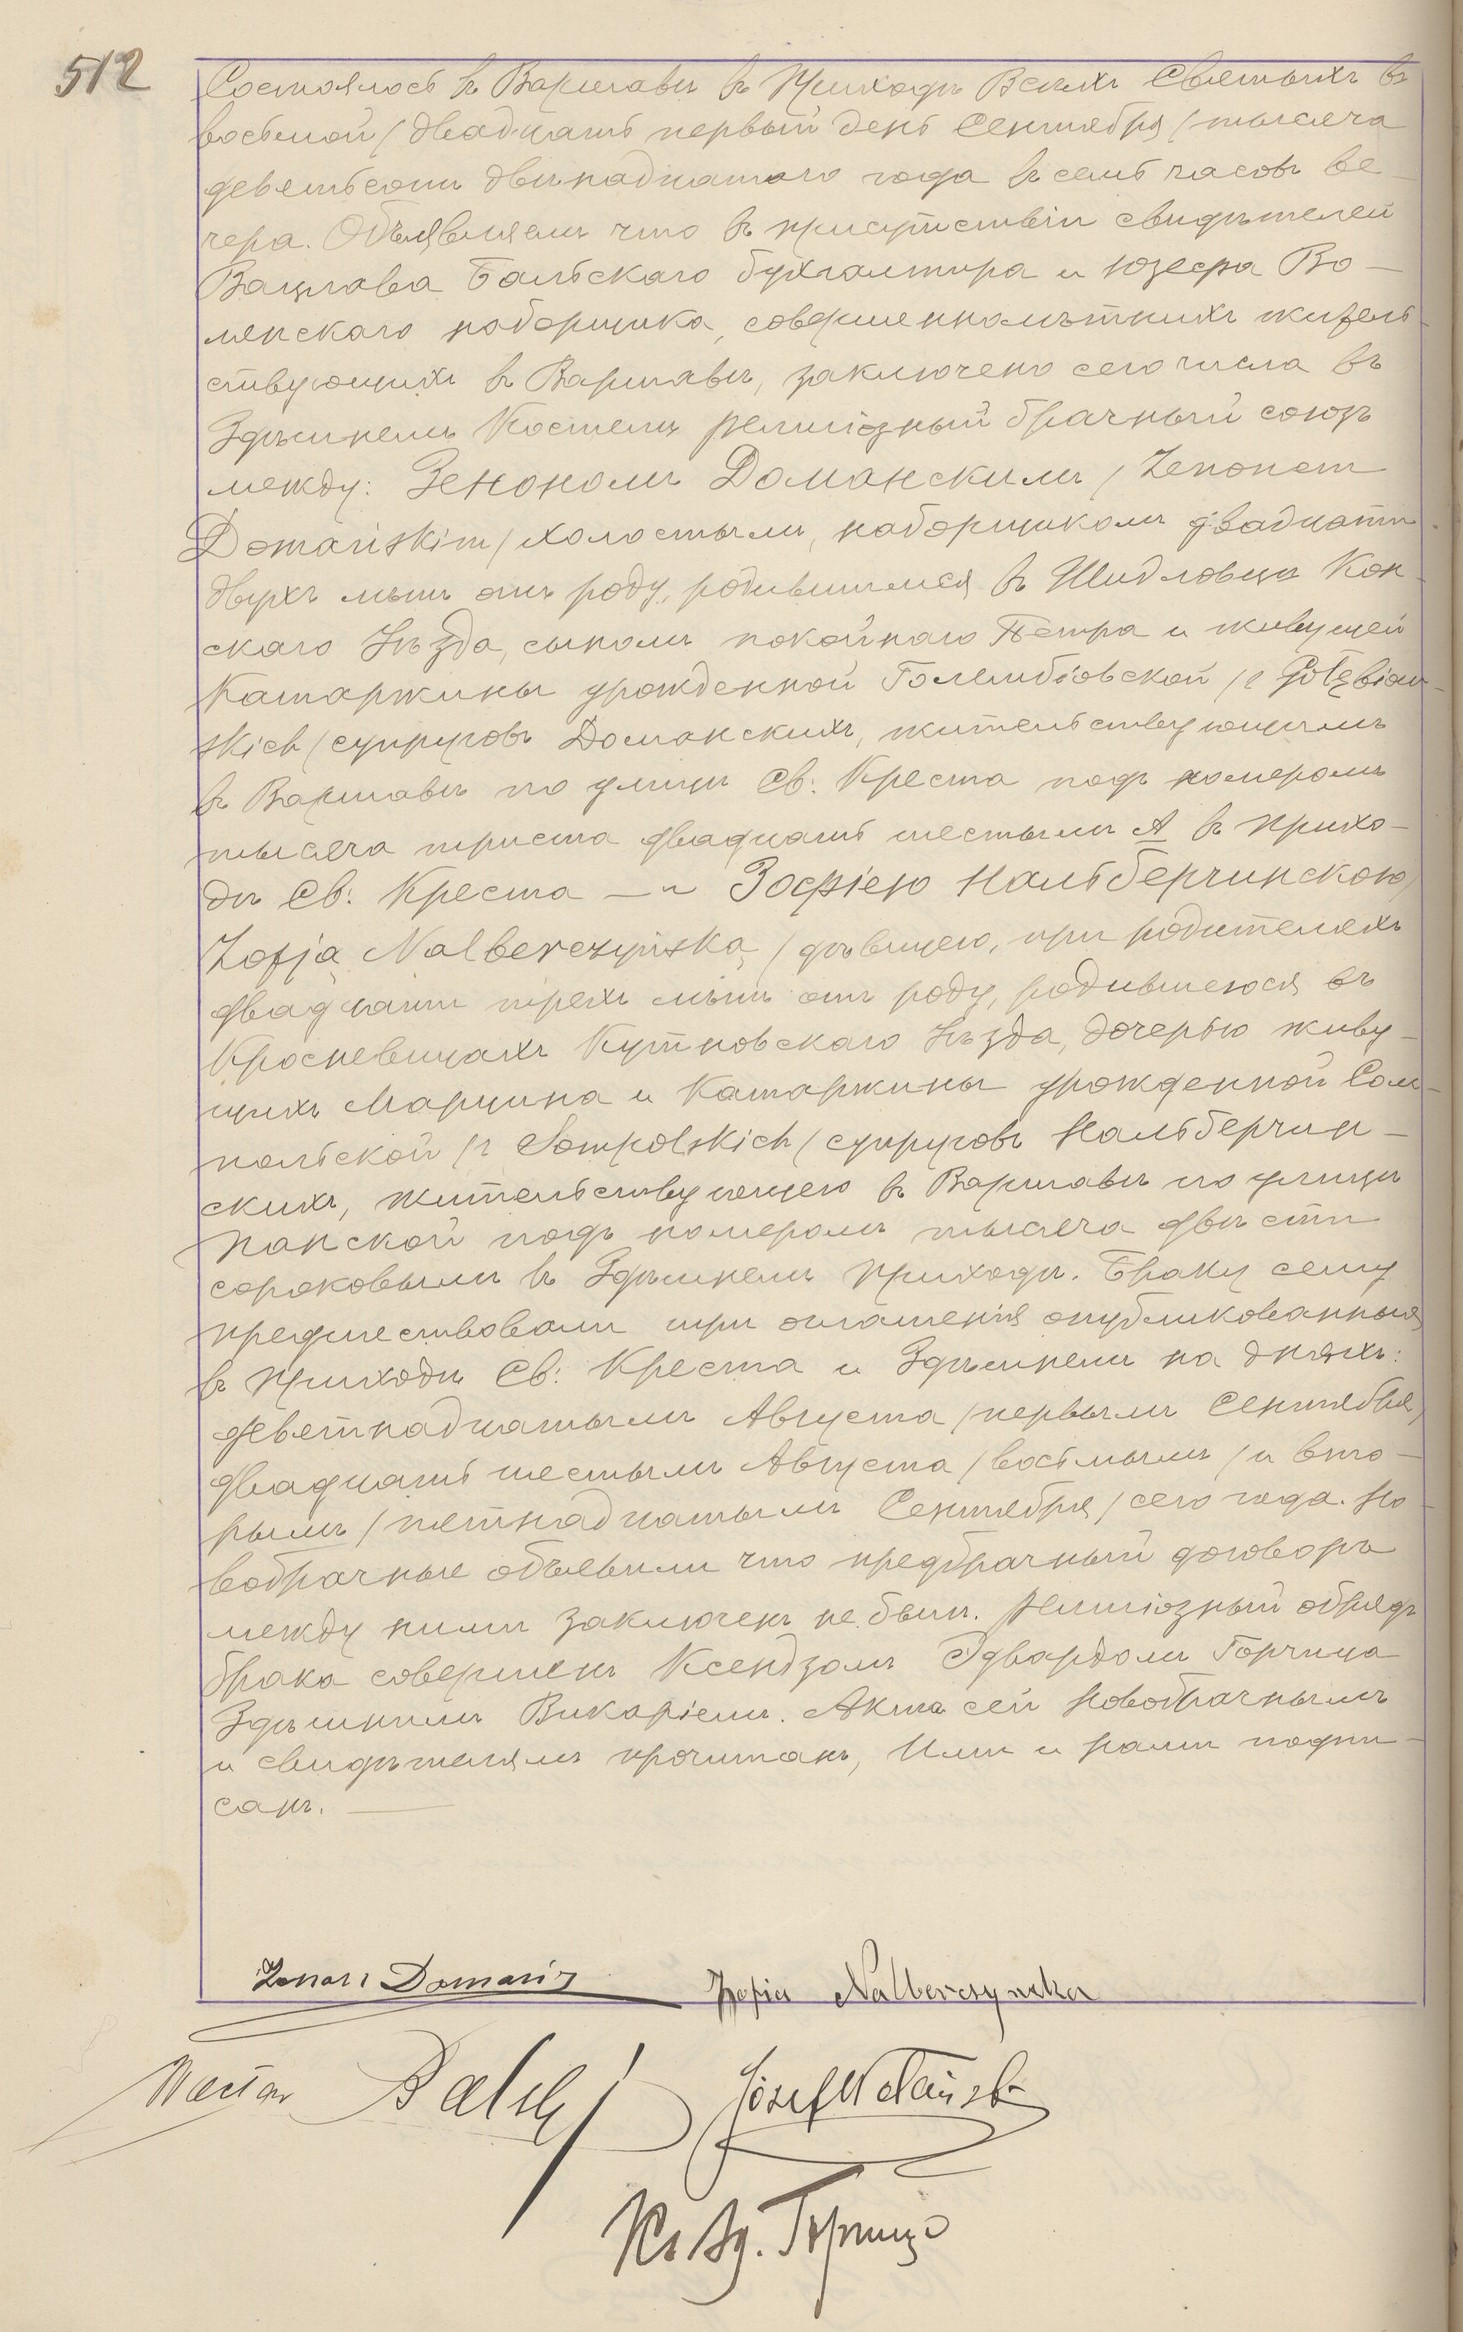 512
Состоялось въ Варшавѣ въ Приходѣ Всѣхъ Святыхъ въ
восьмой / двадцать первый день Сентября / тысяча
девятьсотъ двѣнадцатаго года въ семь часовъ ве-
чера. Объявляемъ что въ присутствіи свидѣтелей
Вацлава Бальскаго бухгалтера и Юзефа Во-
лянскаго наборщика, совершеннолѣтнихъ житель-
ствующихъ въ Варшавѣ, заключено сего числа въ
Здѣшнемъ Костелѣ религіозный брачный союзъ
между: Зенономъ Доманскимъ / Zenonem
Domańskim / холостымъ, наборщикомъ двадцати
двухъ лѣтъ отъ роду, родившимся въ Шидловцѣ Кон-
скаго Уѣзда, сыномъ покойнаго Петра и живущей
Катаржины урожденной Голембіовской / z Gołębiow-
skich / супруговъ Доманскихъ, жительствующимъ
въ Варшавѣ по улицѣ Св: Креста подъ номеромъ
тысяча триста двадцать шестымъ А въ прихо-
дѣ Св: Креста — и Зофіею Нальберчинскою /
Zofją Nalberczyńską / дѣвицею, при родителяхъ
двадцати трехъ лѣтъ отъ роду, родившеюся въ
Кросневицахъ Кутновскаго Уѣзда, дочерью живу-
щихъ Марцина и Катаржины урожденной Сом-
польской / z Sompolskich / супруговъ Нальберчин-
скихъ, жительствующею въ Варшавѣ по улицѣ
Панской подъ номеромъ тысяча двѣсти
сороковымъ въ Здѣшнемъ приходѣ. Браку сему
предшествовали три оглашенія опубликованныя
въ приходѣ Св: Креста и Здѣшнемъ на дняхъ:
девятнадцатымъ Августа / первымъ Сентября,
двадцать шестымъ Августа / восьмымъ / и вто-
рымъ / пятнадцатымъ Сентября / сего года. Но-
вобрачные объявили что предбрачный договоръ
между ними заключенъ не былъ. Религіозный обрядъ
брака совершенъ Ксендзомъ Эдвардомъ Горчица
Здѣшнимъ Викаріемъ. Актъ сей Новобрачнымъ
и свидѣтелямъ прочитанъ, Ими и нами подпи-
санъ. —
Zenon Domański Zofia Nalberczynska
Wacław Balski Józef Wolański
Кс. Эд. Горчица